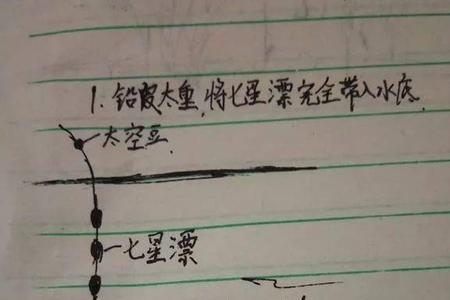 1. 铅皮太重,将七星漂完全带入水底.
太空豆
七星漂